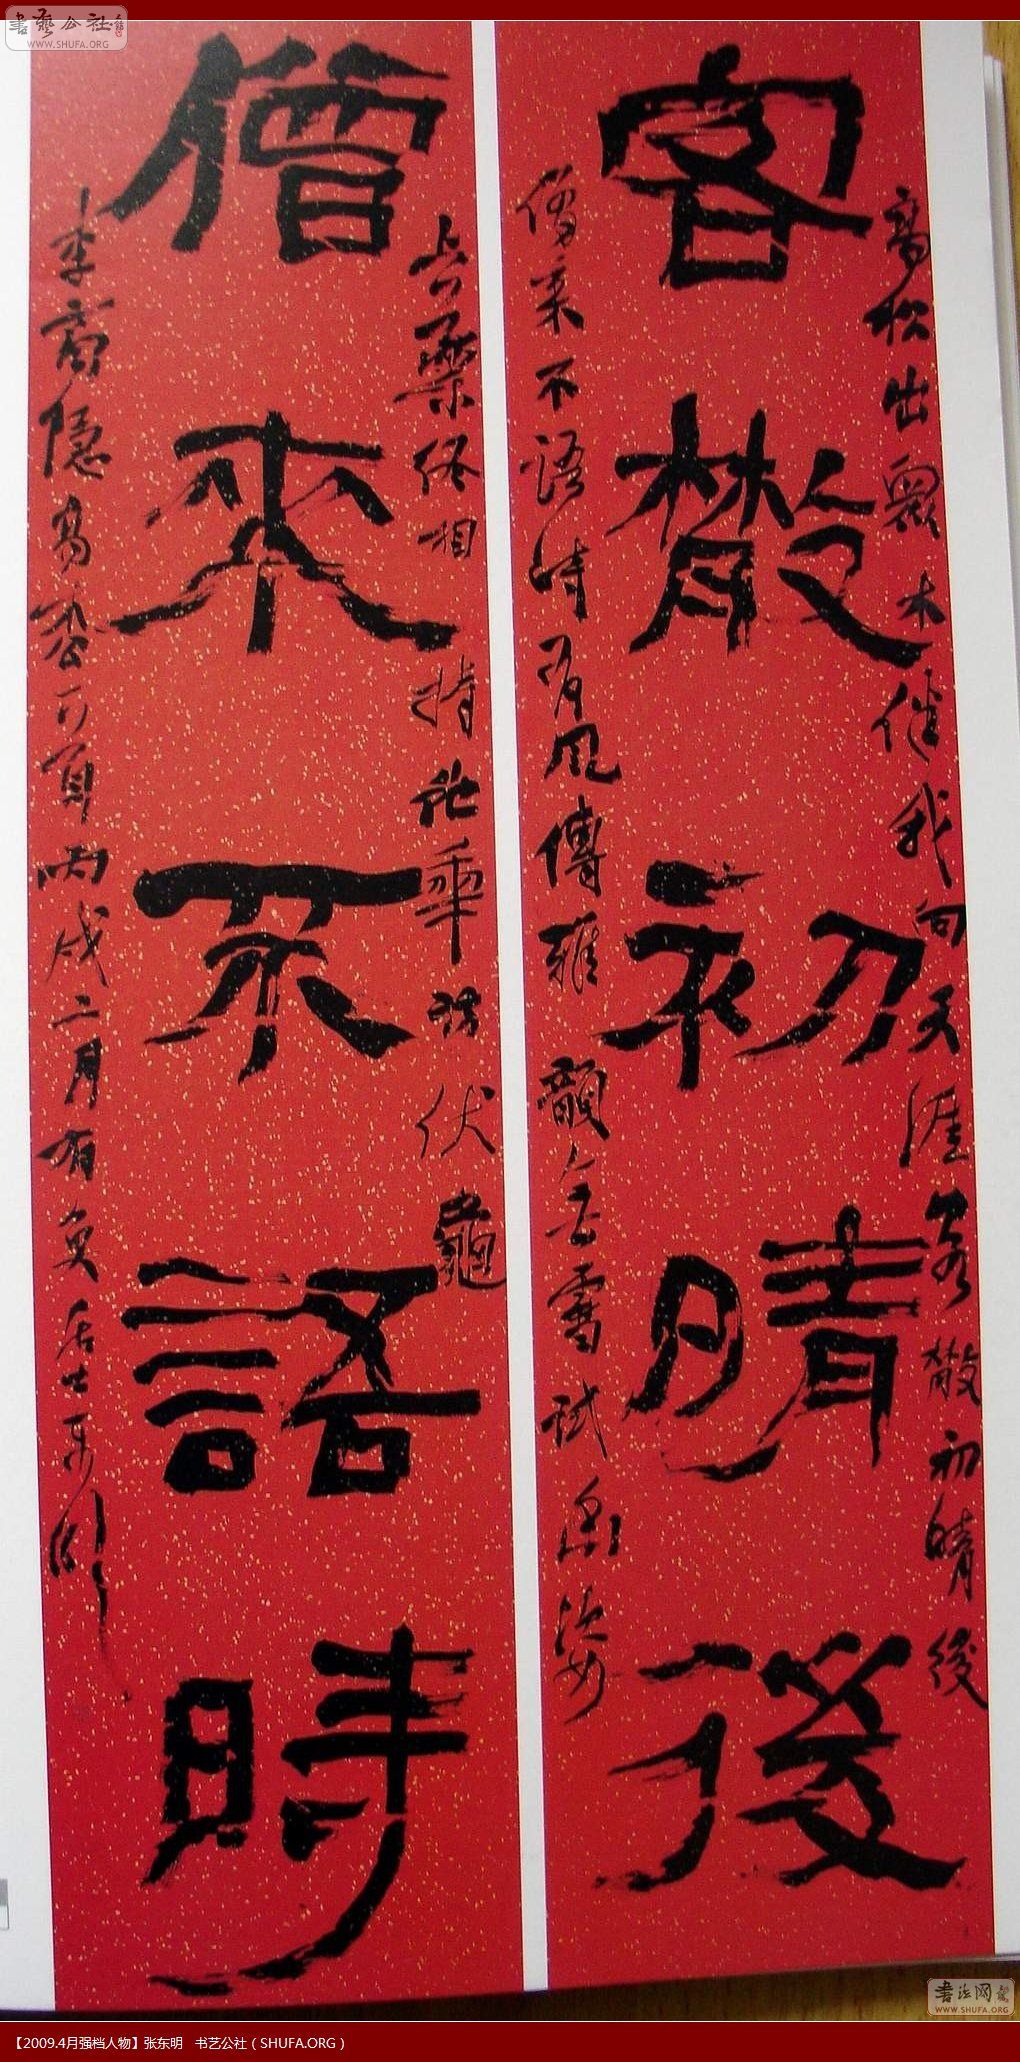 書藝公社
WWW.SHUFA.ORG
高松出眾木伴我向天涯客散初晴後
客散初晴後
僧来不語時有風傳雅韻無雪試幽姿
上藥終相持他年訪伏龜
僧来不語時
李商隱高松一首丙戌二月有奐居士東明
书法网
WWW.SHUFA.ORG
【2009.4月强档人物】张东明 书艺公社（SHUFA.ORG）